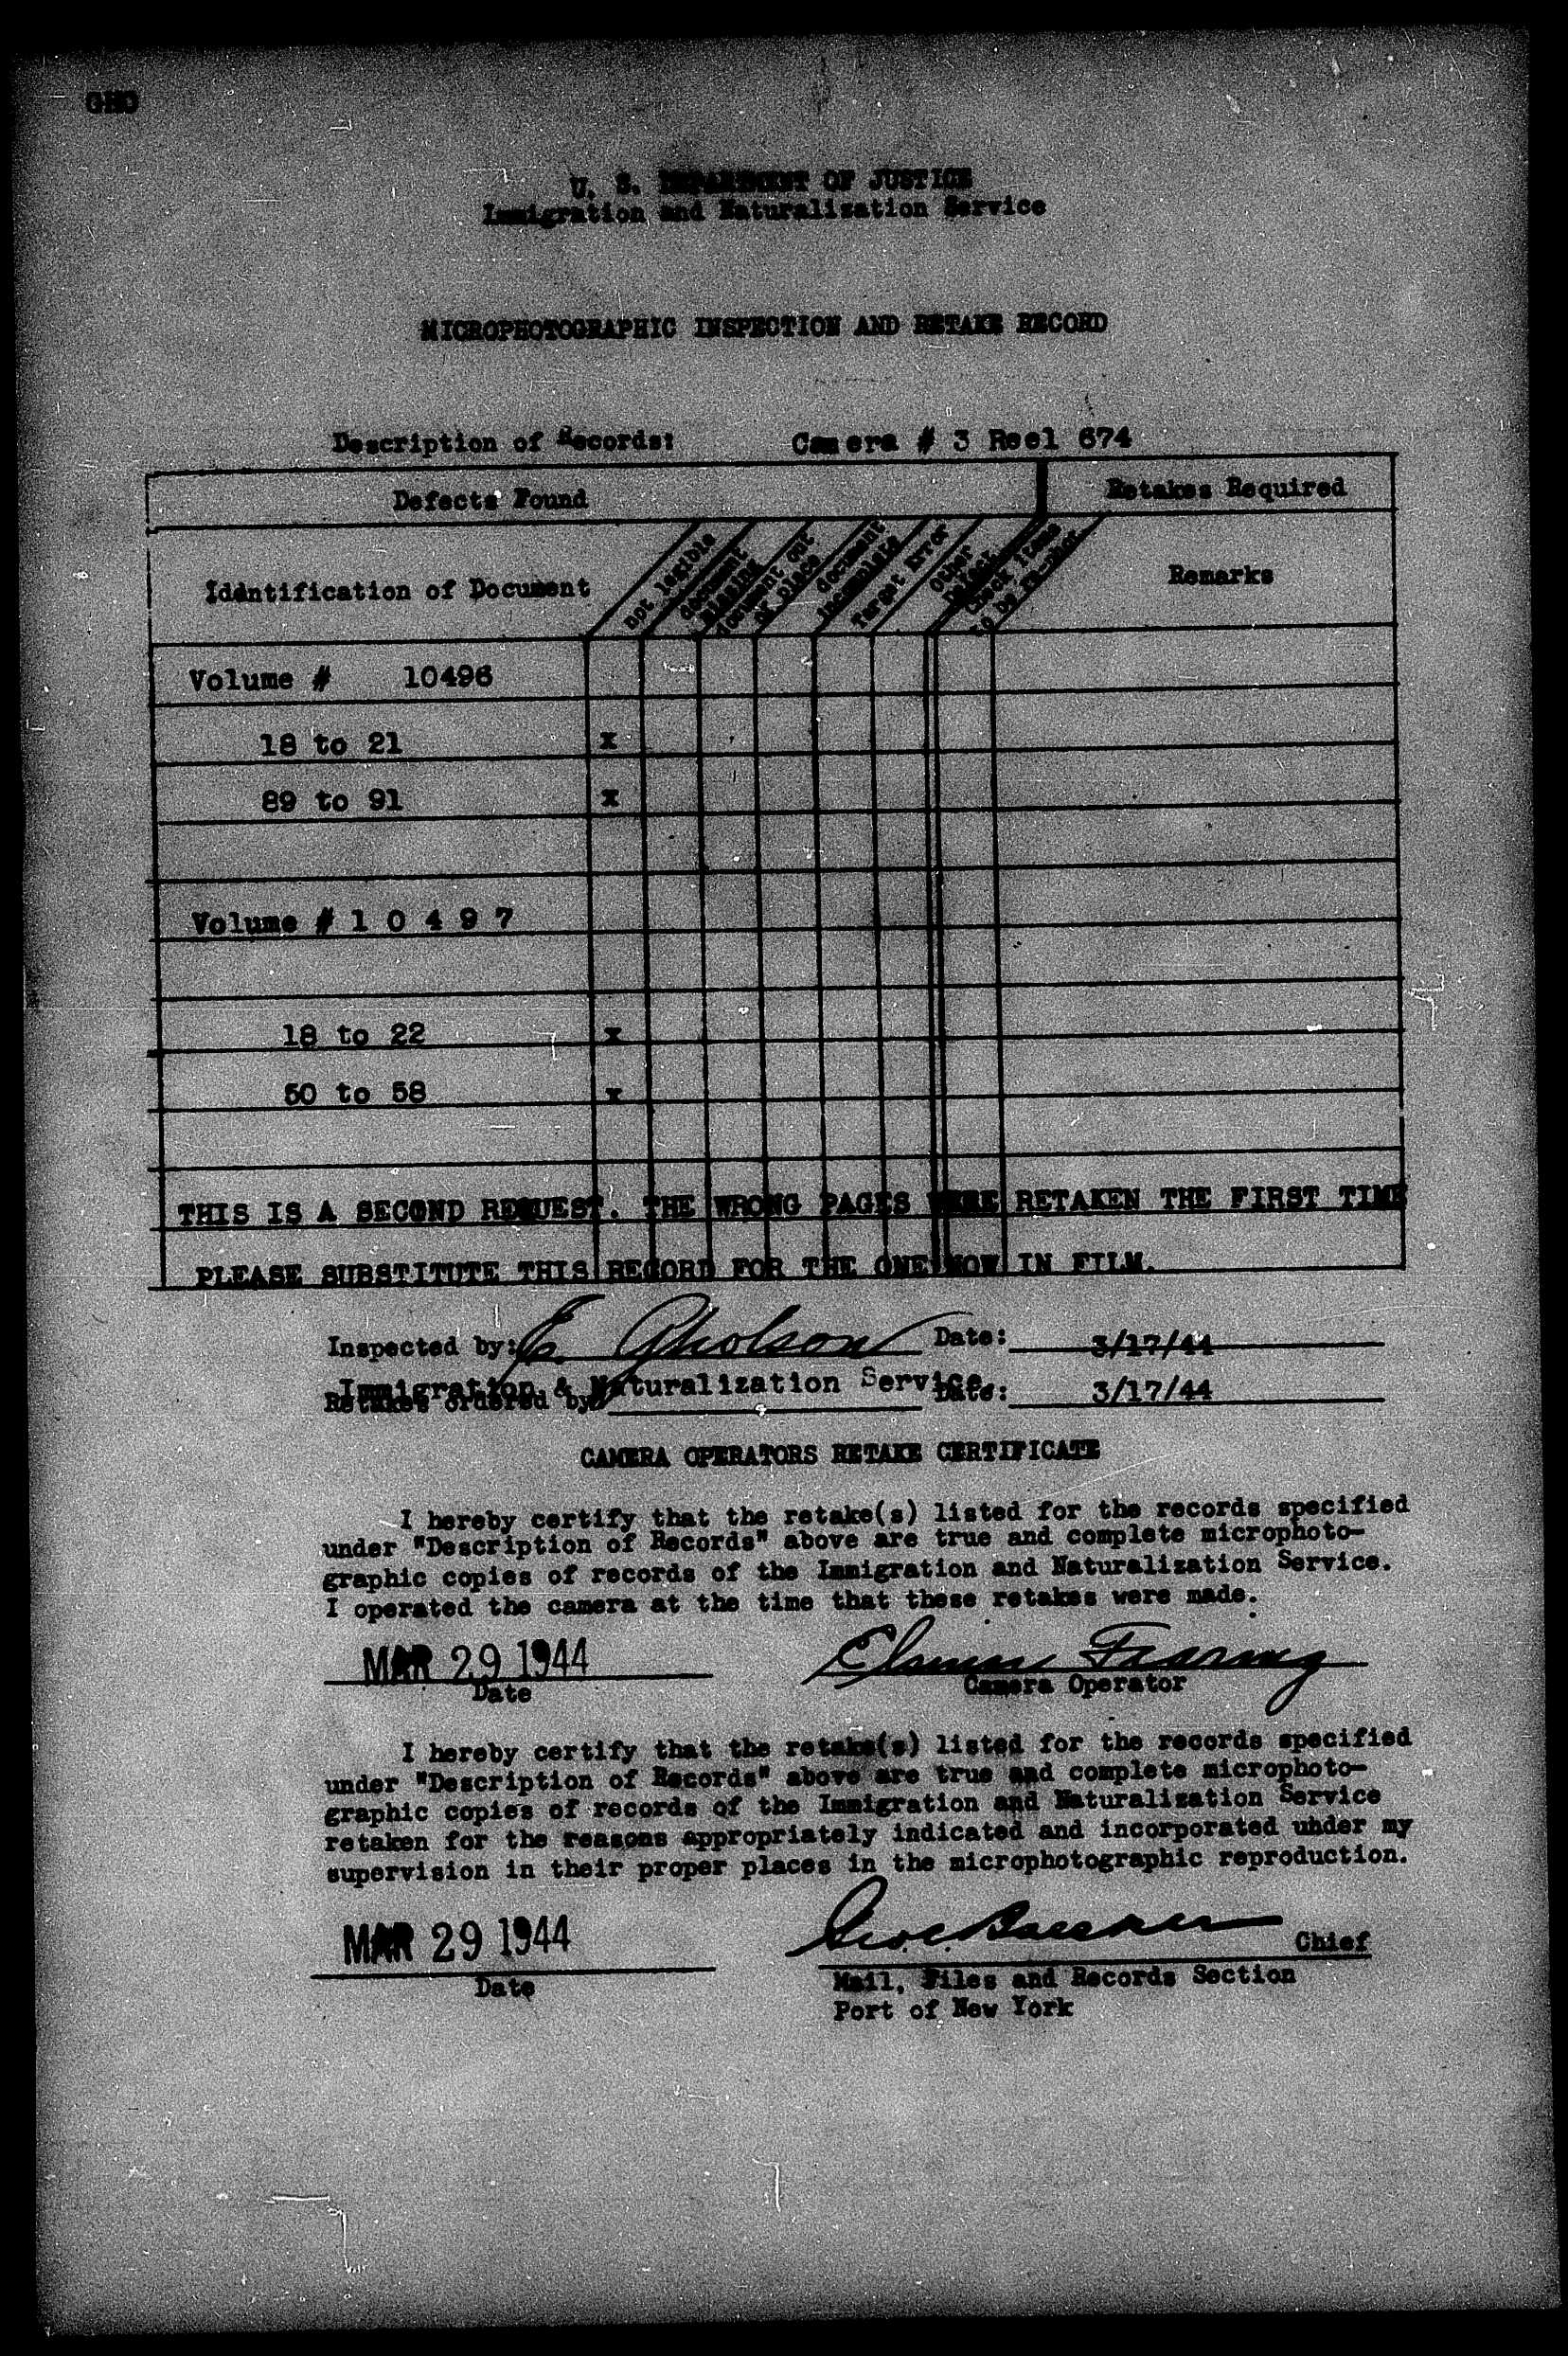 U. S. DEPARTMENT OF JUSTICE
Immigration and Naturalization Service
MICROPHOTOGRAPHIC INSPECTION AND RETAKE RECORD
Description of Records: Camera # 3 Reel 674
Defects Found Retakes Required
Identification of Document
not legible
document missing
document out of place
document incomplete
Target Error
Other Defect
Check items to be re-shot
Remarks
Volume # 10496
18 to 21 x
89 to 91 x
Volume # 1 0 4 9 7
18 to 22 x
50 to 58 x
THIS IS A SECOND REQUEST. THE WRONG PAGES WERE RETAKEN THE FIRST TIME
PLEASE SUBSTITUTE THIS RECORD FOR THE ONE NOW IN FILM.
Inspected by: E. Gholson Date: 3/17/44
Immigration & Naturalization Service.
Retakes ordered by Date: 3/17/44
CAMERA OPERATORS RETAKE CERTIFICATE
I hereby certify that the retake(s) listed for the records specified
under "Description of Records" above are true and complete microphoto-
graphic copies of records of the Immigration and Naturalization Service.
I operated the camera at the time that these retakes were made.
MAR 29 1944
Date Camera Operator
I hereby certify that the retake(s) listed for the records specified
under "Description of Records" above are true and complete microphoto-
graphic copies of records of the Immigration and Naturalization Service
retaken for the reasons appropriately indicated and incorporated under my
supervision in their proper places in the microphotographic reproduction.
MAR 29 1944 Chief
Date Mail, Files and Records Section
Port of New York